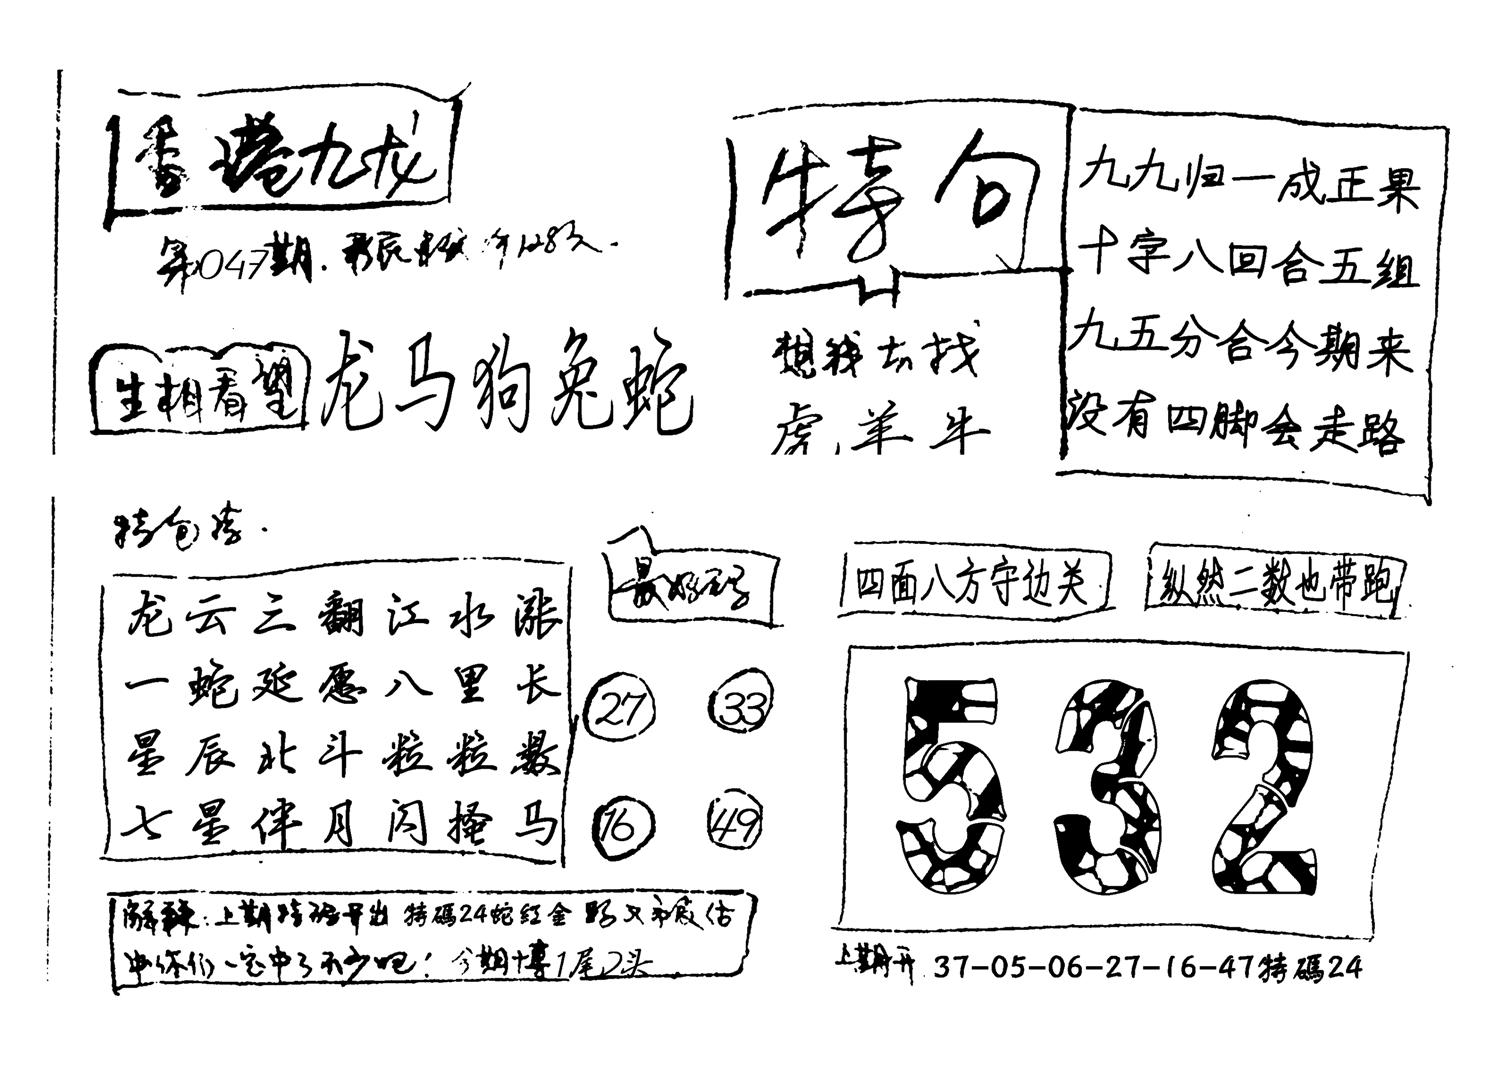 香港九龙
第047期.
生相看望
龙马狗兔蛇
特句
想我去找
虎,羊牛
九九归一成正果
十字八回合五组
九五分合今期来
没有四脚会走路
龙云三翻江水涨
一蛇延愿八里长
星辰北斗粒粒数
七星伴月闪掩马
最好码
27 33
16 49
四面八方守边关
纵然二数也带跑
532
上期特码开出 特碼24蛇红金
你们一定中了不少吧! 今期博1尾2头
上期开 37-05-06-27-16-47特碼24